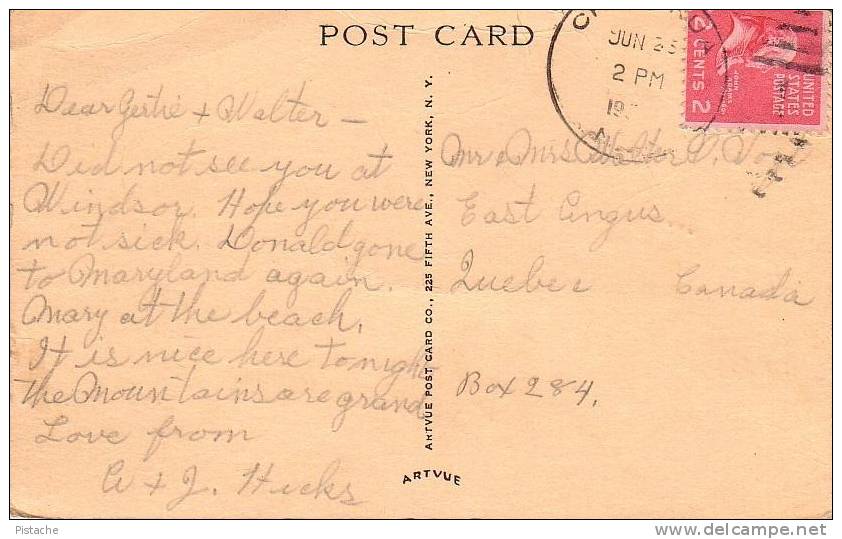 POST CARD
JUN 25
2 PM
UNITED
STATES
POSTAGE
2 CENTS 2
JOHN ADAMS
Dear Gertie + Walter -
Did not see you at
Windsor. Hope you were
not sick. Donald gone
to Maryland again.
Mary at the beach.
It is nice here tonight
The Mountains are grand
Love from
A + J. Hicks
ARTVUE POST CARD CO., 225 FIFTH AVE., NEW YORK, N. Y.
ARTVUE
Mr & Mrs Walter
East Angus
Quebec Canada
Box 284.
Pistache
www.delcampe.net